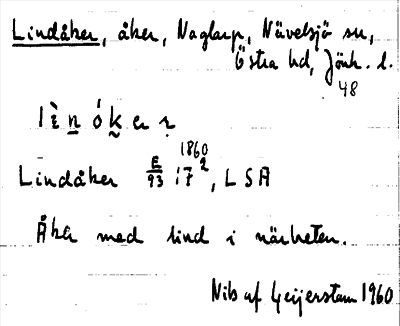 Lindåker, åker, Naglarp, Nävelsjö sn,
Östra hd, Jönk. l.
48
lìnókeṛ
1860
Lindåker E/93 17², LSA
Åker med lind i närheten.
Nils af Geijerstam 1960